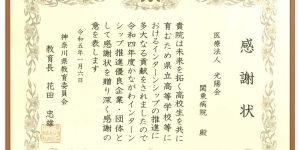 感謝状
医療法人 光陽会
関東病院 殿
貴院は未来を拓く高校生を共に
育むため県立高等学校等に
おけるインターンシップの推進に
多大なる貢献をされましたので
令和四年度かながわインターン
シップ推進優良企業・団体と
して感謝状を贈り深く感謝の
意を表します
令和五年一月六日
神奈川県教育委員会
教育長 花田 忠雄